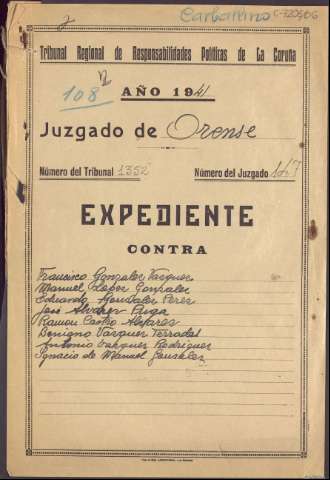 Carballino C-7225/06
Tribunal Regional de Responsabilidades Políticas de La Coruña
108
AÑO 1941
Juzgado de Orense
Número del Tribunal 1352 Número del Juzgado 167
EXPEDIENTE
CONTRA
Francisco Gonzalez Vazquez
Manuel Lopez Gonzalez
Eduardo Gonzalez Perez
José Alvarez Puga
Ramon Castro Alvarez
Benigno Vazquez Terradas
Antonio Vazquez Rodriguez
Ignacio de Manuel Gonzalez